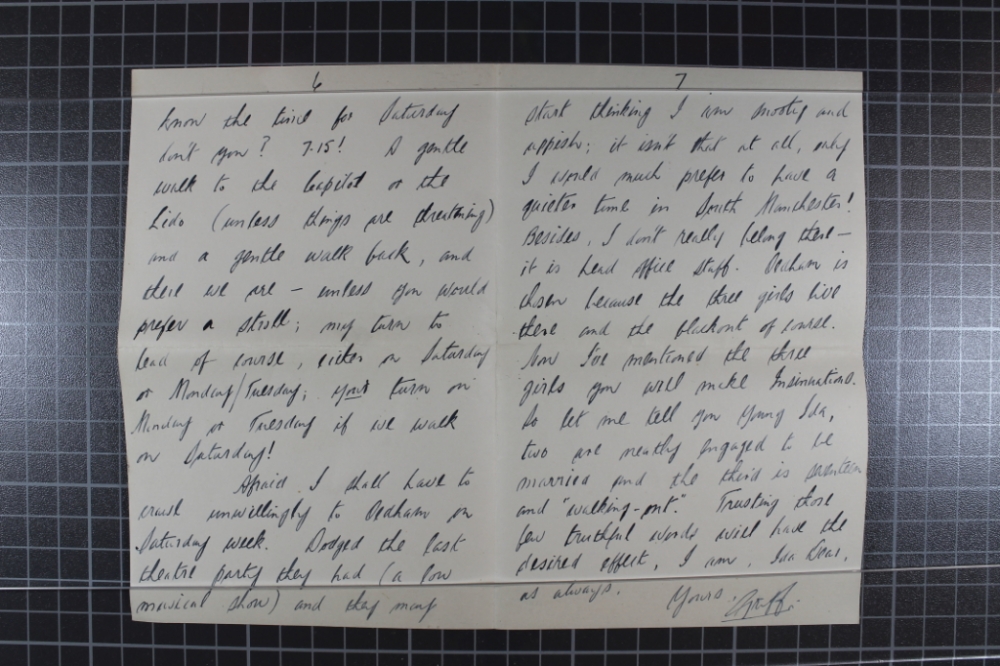 6
know the time for Saturday
don't you? 7.15! A gentle
walk to the Capitol or the
Lido (unless things are threatening)
and a gentle walk back, and
there we are – unless you would
prefer a stroll; my turn to
lead of course, either on Saturday
or Monday/Tuesday; your turn on
Monday or Tuesday if we walk
on Saturday!
Afraid I shall have to
crawl unwillingly to Oldham on
Saturday week. Dodged the last
theatre party they had (a low
musical show) and they may
7
start thinking I am snooty and
uppish; it isn't that at all, only
I would much prefer to have a
quieter time in South Manchester!
Besides, I don't really belong there –
it is head office staff. Oldham is
chosen because the three girls live
there and the blackout of course.
Now I've mentioned the three
girls you will make Insinuations.
So let me tell you young Ida,
two are neatly engaged to be
married and the third is seventeen
and "walking-out". Trusting those
few truthful words will have the
desired effect, I am, Ida Dear,
as always. Yours.